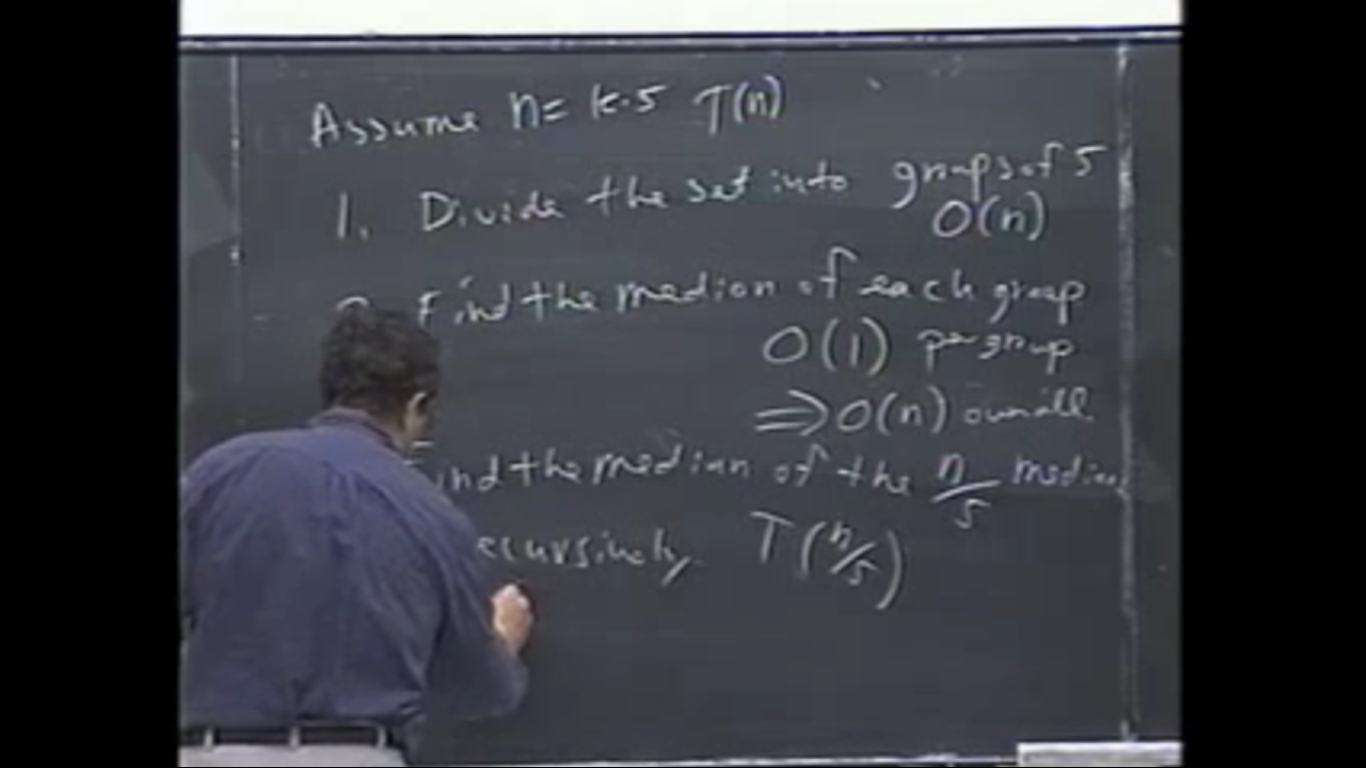 Assume n = k.5 T(n)
1. Divide the set into groups of 5
O(n)
Find the median of each group
O(1) per group
⇒ O(n) overall
ind the median of the n/5 medians
ecursively T(n/5)